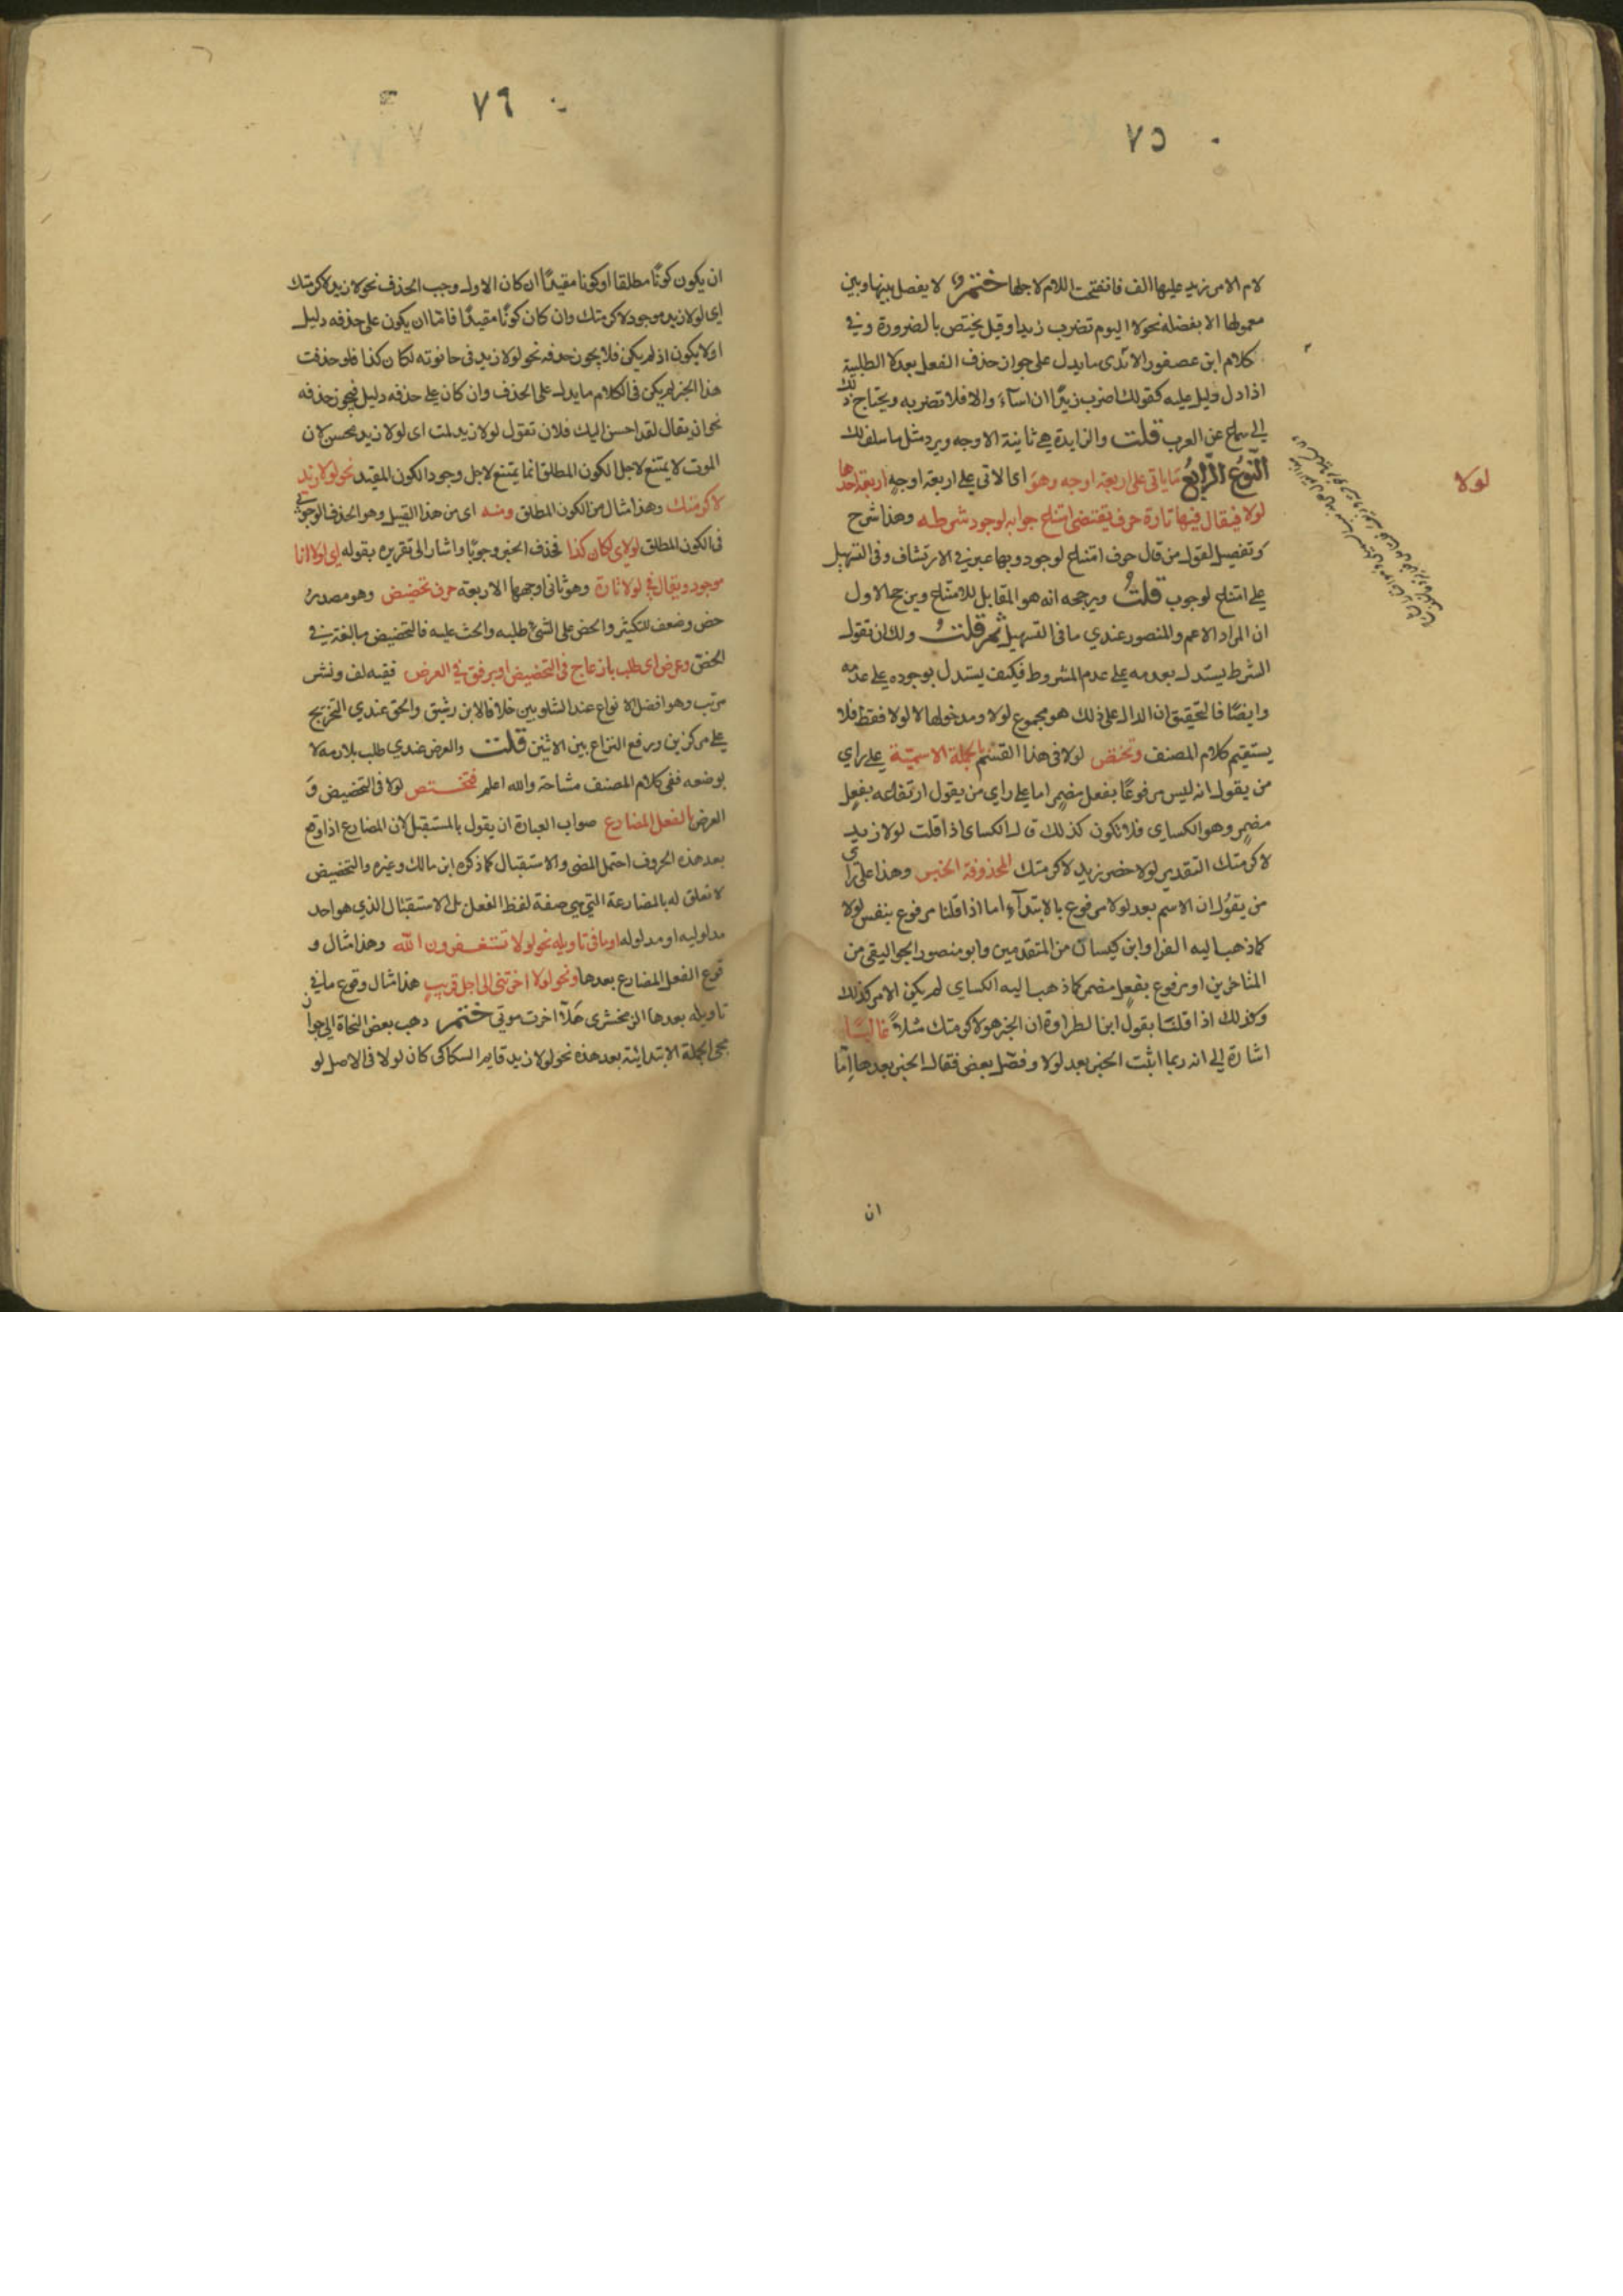 ٧٥
لام الامر زيد عليها الف فانفتحت اللام لاجلها ختمر لا يفصل بينها وبين
معمولها الا بفضلة نحو لا اليوم تضرب زيدا وقيل يختص بالضرورة وفي
كلام ابن عصفور الابدي ما يدل على جواز حذف الفعل بعد لا الطلبية
اذا دل دليل عليه كقولك اضرب زيدًا ان اسآء والا فلا تضربه ويحتاج ذلك
الي سماع عن العرب قلت والزايدة هي ثانية الاوجه ويرد مثل ما سلف لك
النّوعُ الرّابعُ ما ياتي على اربعة اوجه وهو اى الاتى على اربعة اوجهٍ اربعة احدها
لولا
لولا فيقال فيها تارة حرف يقتضى امتناع جوابه لوجود شرطه وهذا شرح
وتفصيل لقول من قال حرف امتناع لوجود وبها عبر في الارتشاف وفى التسهيل
على امتناع لوجوب قلتُ ويرجحه انه هو المقابل للامتناع ويرجح الاول
ان المراد الاعم والمنصور عندي ما فى التسهيل ثمر قلت ولك ان تقول
الشرط يستدل بعدمه على عدم المشروط فكيف يستدل بوجوده على عدمه
وايضًا فالتحقيق ان الدال على ذلك هو مجموع لولا ومدخولها لا لولا فقط فلا
يستقيم كلام المصنف وتختص لولا فى هذا القسم بالجملة الاسميّة على راي
من يقول انه ليس مرفوعًا بفعل مضمر اما على راى من يقول ارتفاعه بفعل
مضمر وهو الكساى فلا تكون كذلك قال الكساى اذا قلت لولا زيد
لاكرمتك التقدير لولا حضر زيد لاكرمتك المحذوفة الخبر وهذا على راى
من يقُول ان الاسم بعد لولا مرفوع بالابتدآء اما اذا قلنا مرفوع بنفس لولا
كما ذهب اليه الفرا وابن كيسان من المتقدمين وابو منصور الجواليقى من
المتاخرين او مرفوع بفعل مضمر كما ذهب اليه الكساي لم يكن الامر كذلك
وكذلك اذا قلنا بقول ابن الطراوة ان الخبر هو لاكرمتك مثلاً غالبًا
اشارة الي انه ربما اثبت الخبر بعد لولا وفصّل بعض فقال الخبر بعدها اِمّا
ان
٧٦
ان يكون كونًا مطلقا او كونا مقيدًا ان كان الاول وجب الحذف نحو لولا زيد لاكرمتك
اى لولا زيد موجود لاكرمتك وان كان كونًا مقيدًا فامّا ان يكون على حذفه دليل
اولا يكون اذ لم يكن فلا يجوز حذفه نحو لولا زيد فى حانوته لكان كذا فلو حذفت
هذا الخبر لم يكن فى الكلام ما يدل على الحذف وان كان على حذفه دليل فيجوز حذفه
نحو ان يقال لقد احسن اليك فلان تقول لولا زيد لمت اى لولا زيد محسن لان
الموت لا يمتنع لاجل الكون المطلق انما يمتنع لاجل وجود الكون المقيد نحو لولا زيد
لاكرمتك وهذا مثال من الكون المطلق ومنه اى من هذا القبيل وهو الحذف الوجوبي
فى الكون المطلق لولاى لكان كذا فحذف الخبر وجوبًا واشار الى تقريره بقوله اى لولا انا
موجود ويقال فى لولا تارة وهو ثانى اوجهها الاربعة حرف تحضيض وهو مصدر
حض وضعف للتكثير والحض على الشئ طلبه والحث عليه فالتحضيض مبالغة في
الحض وعرض اى طلب بازعاج فى التحضيض او برفق في العرض ففيه لف ونشر
مرتب وهو افضل الانواع عند الشلوبين خلافا لابن رشيق والحق عندي التخريج
على مركزين ويرفع النزاع بين الاثنين قلت والعرض عندي طلب بلازمه لا
بوضعه ففى كلام المصنف مشاحة والله اعلم فتختص لولا فى التحضيض و
العرض بالفعل المضارع صواب العبارة ان يقول بالمستقبل لان المضارع اذا وقع
بعد هذه الحروف احتمل المضى والاستقبال كما ذكره ابن مالك وغيره والتحضيض
لا تعلق له بالمضارعة التي هي صفة لفظ الفعل بل الاستقبال الذي هو احد
مدلوليه او مدلوله او ما فى تاويله نحو لولا تستغفرون الله وهذا مثال و
قوع الفعل المضارع بعدها ونحو لولا اخرتنى الى اجل قريب هذا مثال وقوع ما في
تاويله بعدها الزمخشرى هَلّا اخرت موتي ختمر ذهب بعض النحاة الي جواز
مجى الجملة الابتدائية بعد هذه نحو لولا زيد قايم السكاكى كان لولا فى الاصل لو